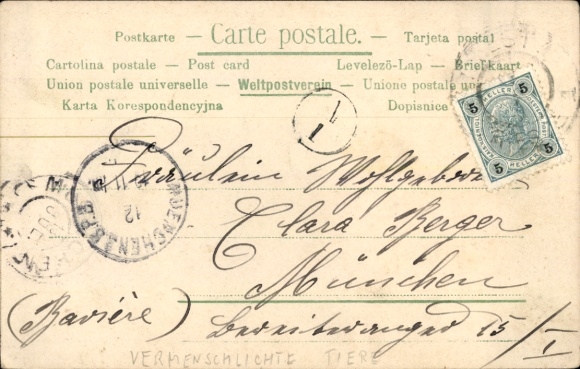 Postkarte - Carte postale. - Tarjeta postal
Cartolina postale - Post card Levelezö-Lap - Briefkaart
Union postale universelle - Weltpostverein - Unione postale
Karta Korespondencyjna Dopisnice
5 5
HELLER
5 5
1
1
12
MUENCHEN
Fräulein Wohlgeboren
Clara Berger
München
(Bavière) 15/I
VERMENSCHLICHTE TIERE